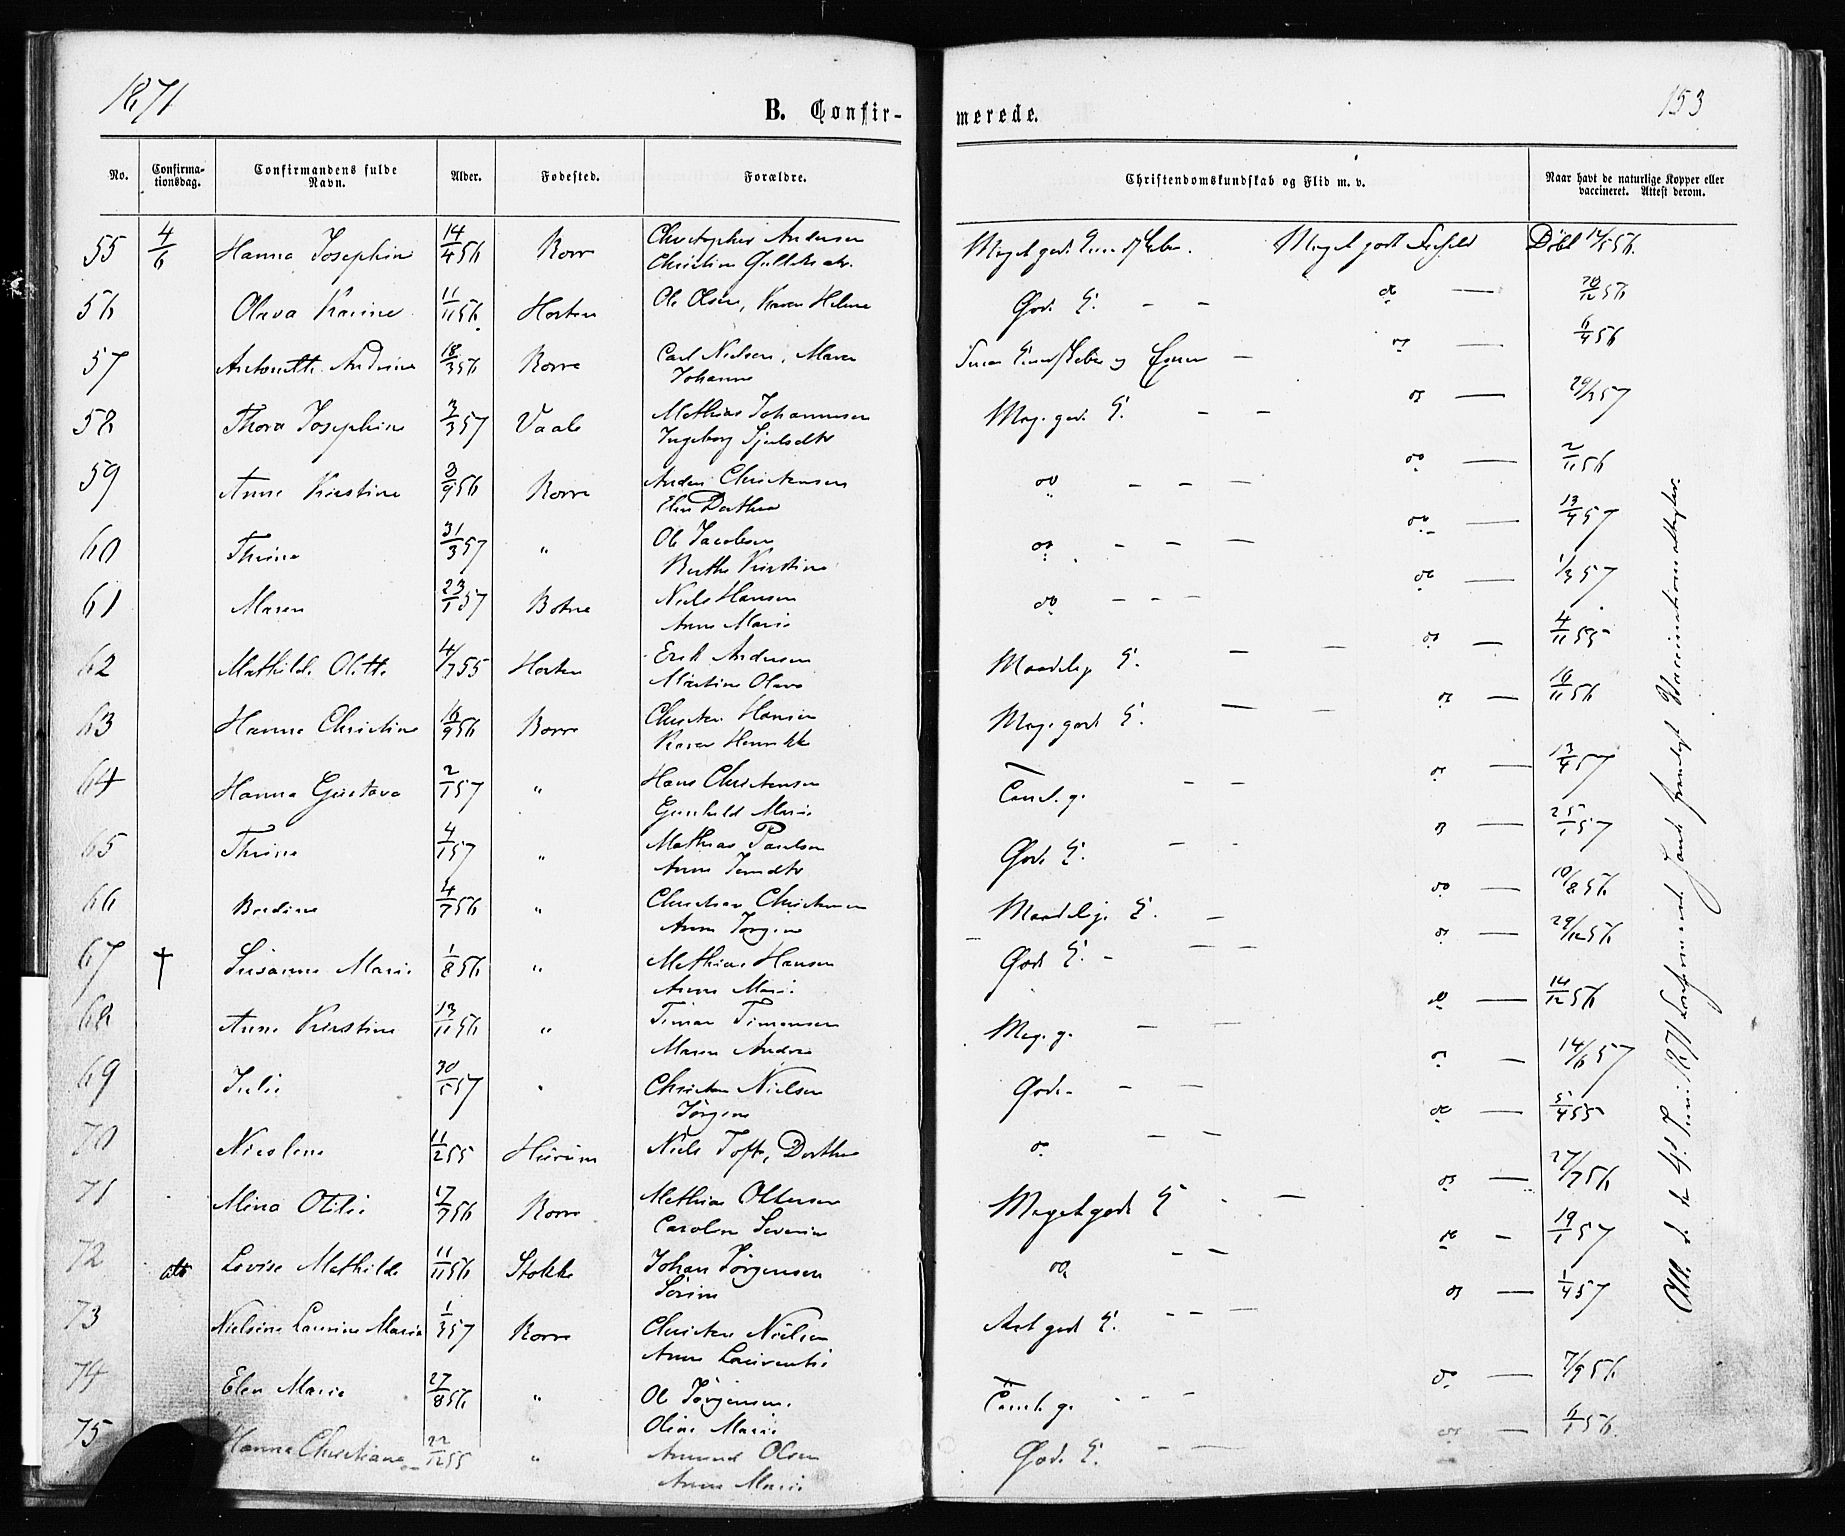 1871
B. Confir-
merede.
153
No.
Confirma-
tionsdag.
Confirmandens fulde
Navn.
Alder.
Fødested.
Forældre.
Christendomskundskab og Flid m. v.
Naar havt de naturlige Kopper eller
vaccineret. Attest derom.
55 4/6 Hanna Josephine 14/4 56 Borre Christopher Andersen Meget god Meget godt Døbt
Christine
56 Olava Karine 11/11 56 Horten Ole Olsen, Karen Helene God K. — — do — 56
57 Antonette Andrine 18/3 56 Borre Carl Nielsen, Maren — do — 6/4 56
Johanne
58 Thora Josephine 3/3 57 Vaale Mathias Johannesen Meg. god K. — — do — 29/3 57
Ingeborg
59 Anne Kirstine 3/9 56 Borre Anders Christensen do — — — do — 2/11 56
Elen Dorthea
60 Thrine 31/3 57 " Ole Jacobsen do — — — do — 13/4 57
Berthe Kirstine
61 Maren 23/1 57 Botne Niels Hansen do — — — do — 1/3 57
Anne Marie
62 Mathilde Olette 4/7 55 Horten Erik Andersen Maadelig K. — — do — 4/11 55
Martine Olava
63 Hanna Christine 16/9 56 Borre Christen Hansen Meg. god K. — — do — 16/11 56
Karen Henrikke
64 Hanna Gustava 2/1 57 " Hans Christensen g. — — do — 13/4 57
Gunhild Marie
65 Thrine 4/1 57 " Mathias Paulsen God K. — — do — 25/1 57
Anne
66 Berdine 4/7 56 " Christian Christensen Maadelig K. — do — 10/8 56
Anne Jørgine
67 † Susanne Marie 1/8 56 " Mathias Hansen God K. — — do — 29/12 56
Anne Marie
68 Anne Kirstine 13/11 56 " Timan Timansen Meg. g. — — do — 14/12 56
Maren Andrea
69 Julie 30/1 57 " Christen Nielsen God — — do — 14/6 57
Jørgine
70 Nicoline 11/2 55 Hurum Niels Toft, Dorthea do — — do — 5/4 55
71 Mina Otilie 17/7 56 Borre Mathias Ottersen Meget godt K — do — 27/7 56
Caroline Severine
72 Lovise Mathilde 11/11 56 Stokke Johan Jørgensen do — — do — 19/1 57
Sørine
73 Nielsine Laurine Marie 1/3 57 Borre Christen Nielsen godt K. — — — do — 1/4 57
Anne Laurentie
74 Elen Marie 27/8 56 " Ole Jørgensen. g. — — do — 7/9 56
Oline Marie
75 Hanna Christiane 22/12 55 " Amund Olsen God K. — — do — 56.
Anne Marie
Juni 1871 Vaccinationsattester.